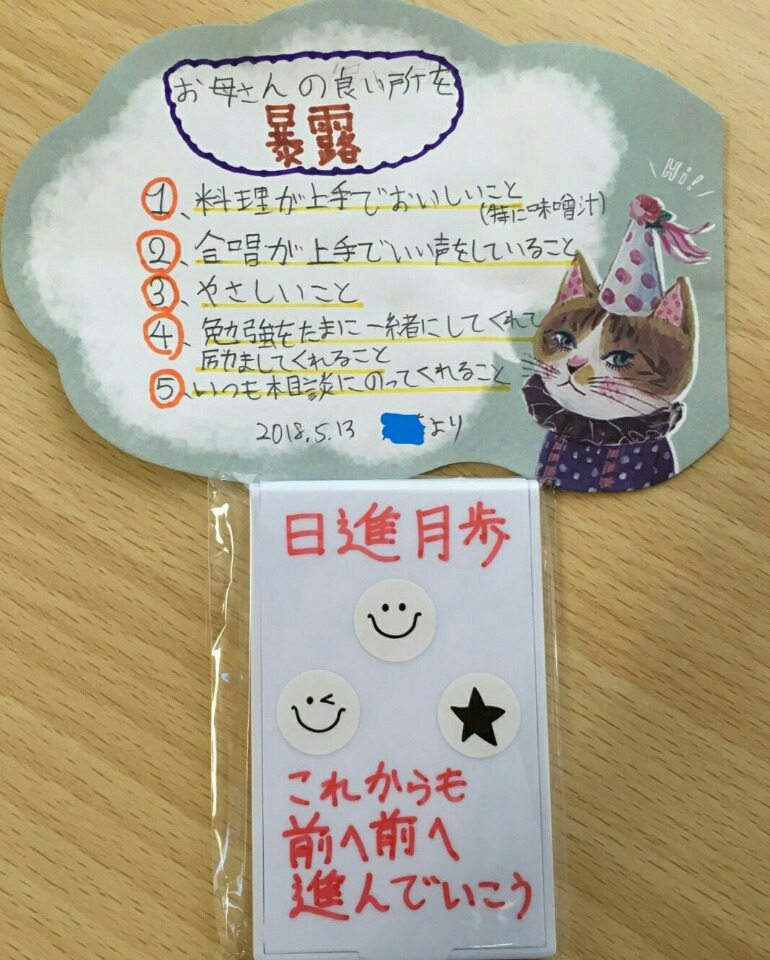 お母さんの良い所を
暴露
Hi!
①、料理が上手でおいしいこと
(特に味噌汁)
②、合唱が上手でいい声をしていること
③、やさしいこと
④、勉強をたまに一緒にしてくれて
励ましてくれること
⑤、いつも相談にのってくれること
2018.5.13 より
日進月歩
これからも
前へ前へ
進んでいこう